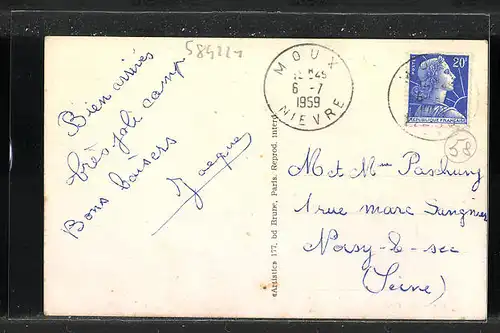 584221
Bien arrivés
très joli camp
Bons baisers
Jacques
MOUX
12H45
6-7
1959
NIEVRE
20F
REPUBLIQUE FRANÇAISE
58
«Artistic» 177, bd Brune, Paris. Reprod. interd.
M et Mme
1 rue Marc
Noisy-le-sec
(Seine)